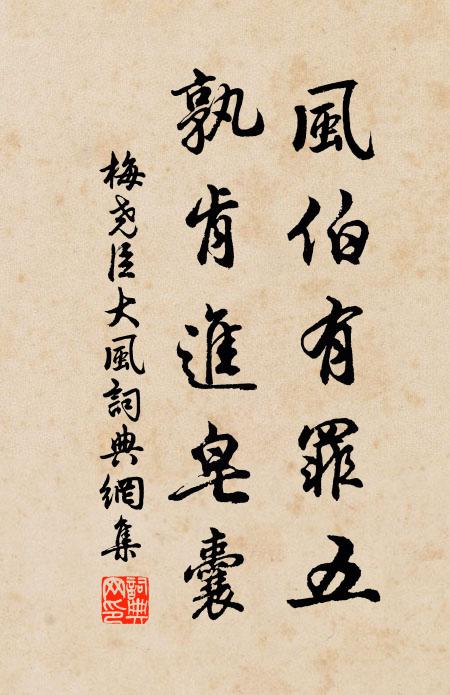 風伯有罪五
孰肯進皂囊
梅尧臣大風詞典網集
詞典网印